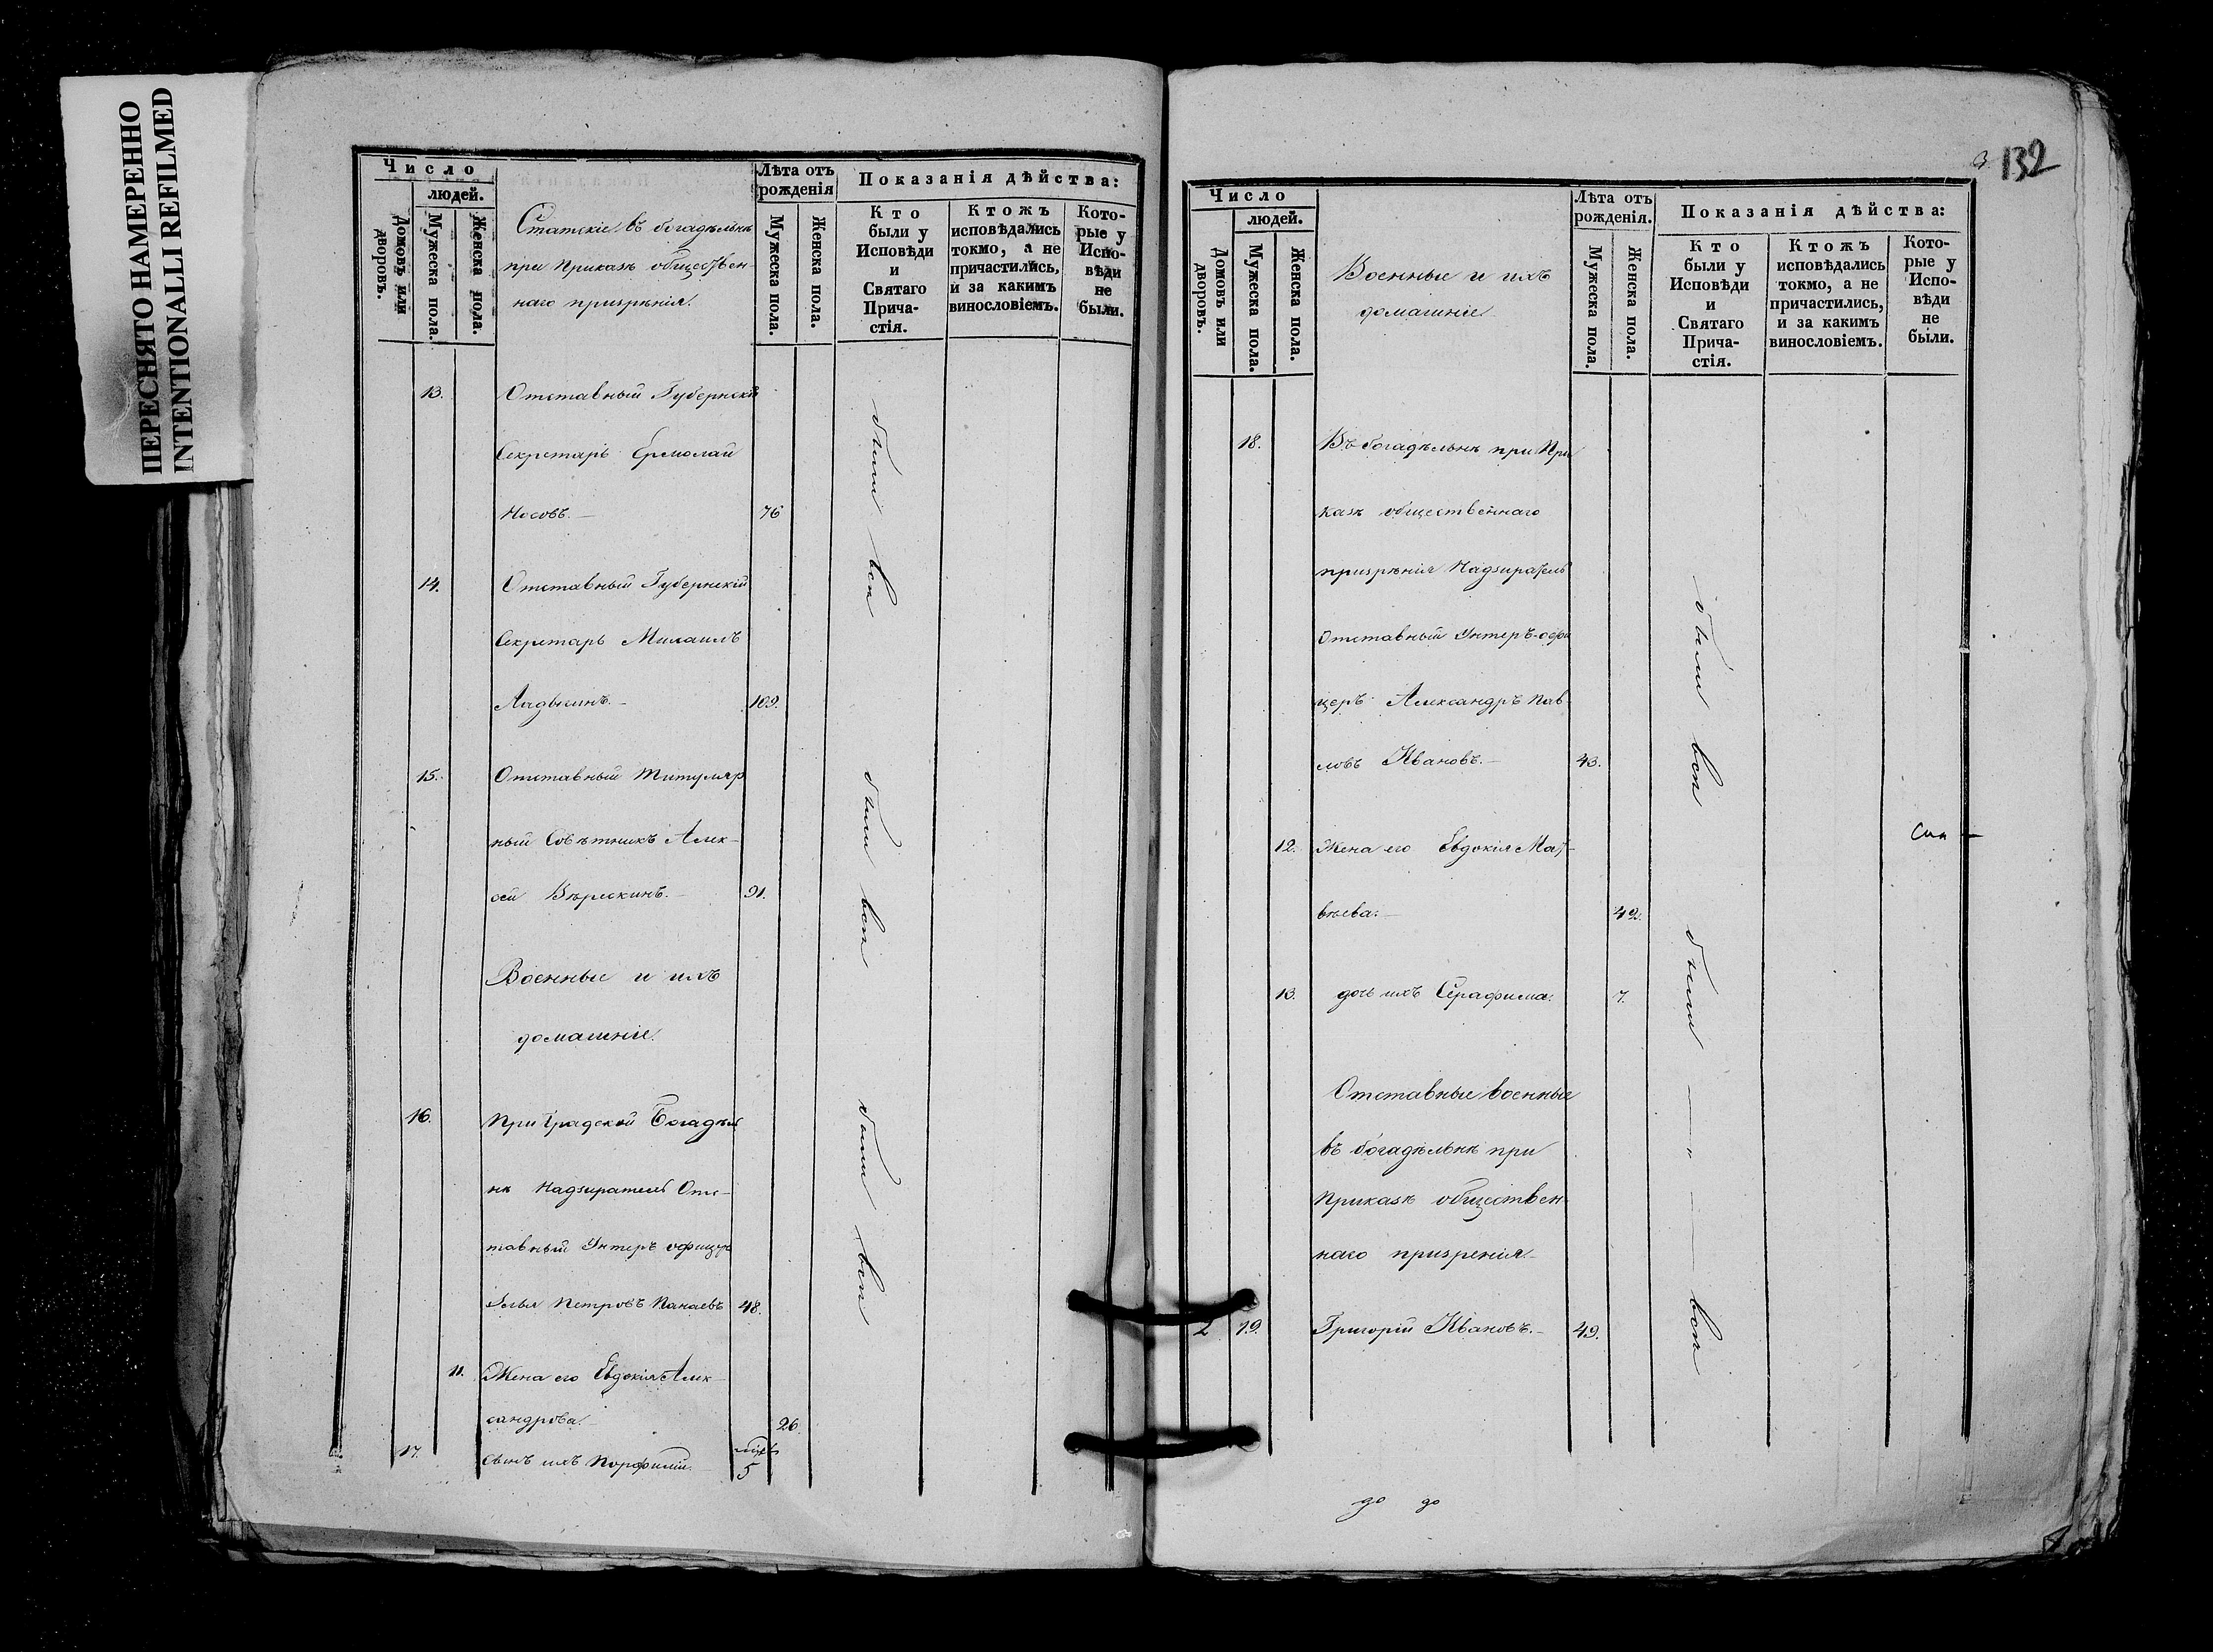 ПЕРЕСНЯТО НАМЕРЕННО
INTENTIONALLI REFILMED
Число
людей.
Домовъ или дворовъ.
Мужеска пола.
Женска пола.
Статскіе въ богадѣльнѣ
при Приказѣ обществен-
наго призрѣнія.
Лѣта отъ рожденія
Мужеска пола.
Женска пола.
Показанія дѣйства:
Кто были у Исповѣди и Святаго Прича-стія.
Ктожъ исповѣдались токмо, а не причастились, и за какимъ винословіемъ.
Кото-рые у Испо-вѣди не были.
13. Отставный Губернскій
Секретарь Ермолай
Носовъ. — 76
были всѣ
14. Отставный Губернскій
Секретарь Михаилъ
Ладыгинъ. — 109.
15. Отставный Титуляр
ный Совѣтникъ Алек-
сѣй — 91.
были всѣ
Военные и ихъ
домашніе.
16. При Градской Богадѣл
нѣ Надзиратель Отс-
тавный Унтеръ офицеръ
Илья Петровъ Панаевъ 48.
были всѣ
11. Жена его Евдокія Алек-
сандрова. — 26.
17. Сынъ ихъ Порфирій. — 5
132
Число
людей.
Домовъ или дворовъ.
Мужеска пола.
Женска пола.
Военные и ихъ
домашніе
Лѣта отъ рожденія.
Мужеска пола.
Женска пола.
Показанія дѣйства:
Кто были у Исповѣди и Святаго Прича-стія.
Ктожъ исповѣдались токмо, а не причастились, и за какимъ винословіемъ.
Кото-рые у Испо-вѣди не были.
18. Въ богадѣльнѣ при При
казѣ общественнаго
призрѣнія Надзиратель
Отставный Унтеръ-офи
церъ Александръ Пав-
ловъ Ивановъ. — 43.
были всѣ
12. Жена его Евдокія Мат-
вѣева. — 42.
13. дочь ихъ Серафима. 7.
были — " — всѣ
Отставные военные
въ богадѣльнѣ при
Приказѣ обществен-
наго призренія
2 19. Григорій Ивановъ. — 49.
до до